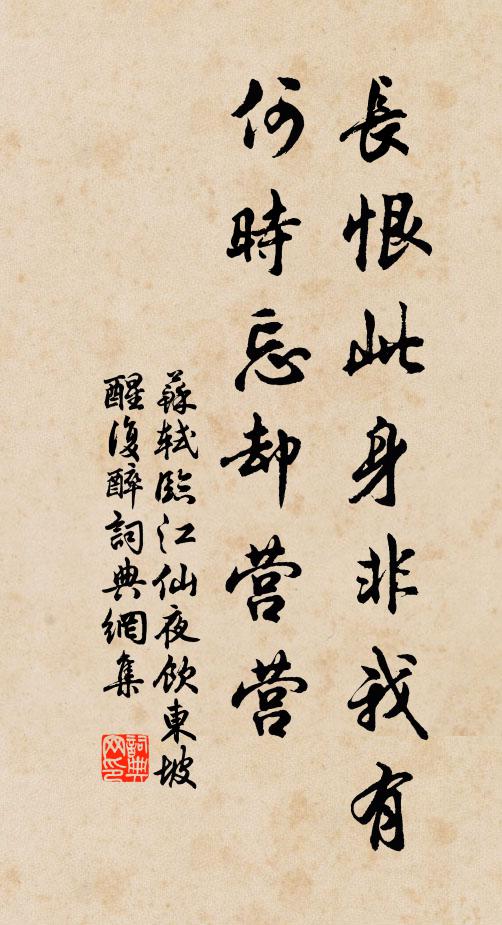 長恨此身非我有
何時忘却营营
蘇軾臨江仙夜飲東坡
醒復醉詞典網集
詞典网印